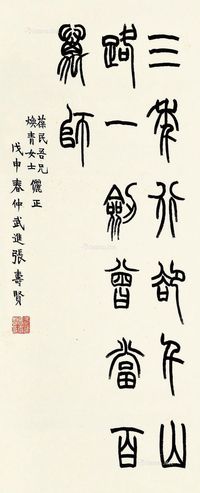 三年行卻千山
路一劍曾當百
萬師
葆民吾兄
煥青女士 儷正
戊申春仲武進張壽賢